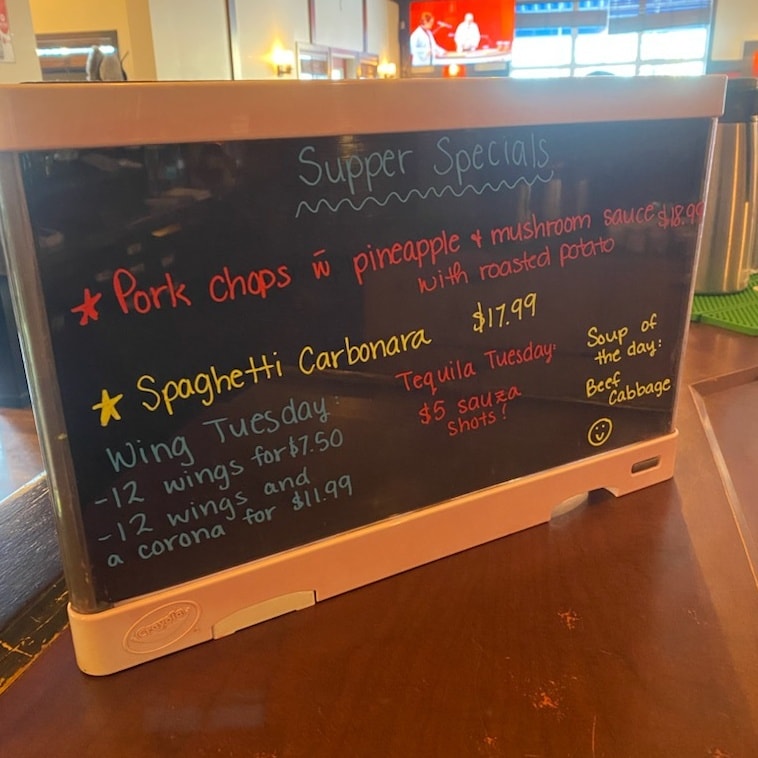 Supper Specials
* Pork chops w̄ pineapple & mushroom sauce $18.99
with roasted potato
* Spaghetti Carbonara $17.99
Wing Tuesday:
-12 wings for $7.50
-12 wings and
a corona for $11.99
Tequila Tuesday:
$5 sauza
shots!
Soup of
the day:
Beef
Cabbage
Crayola